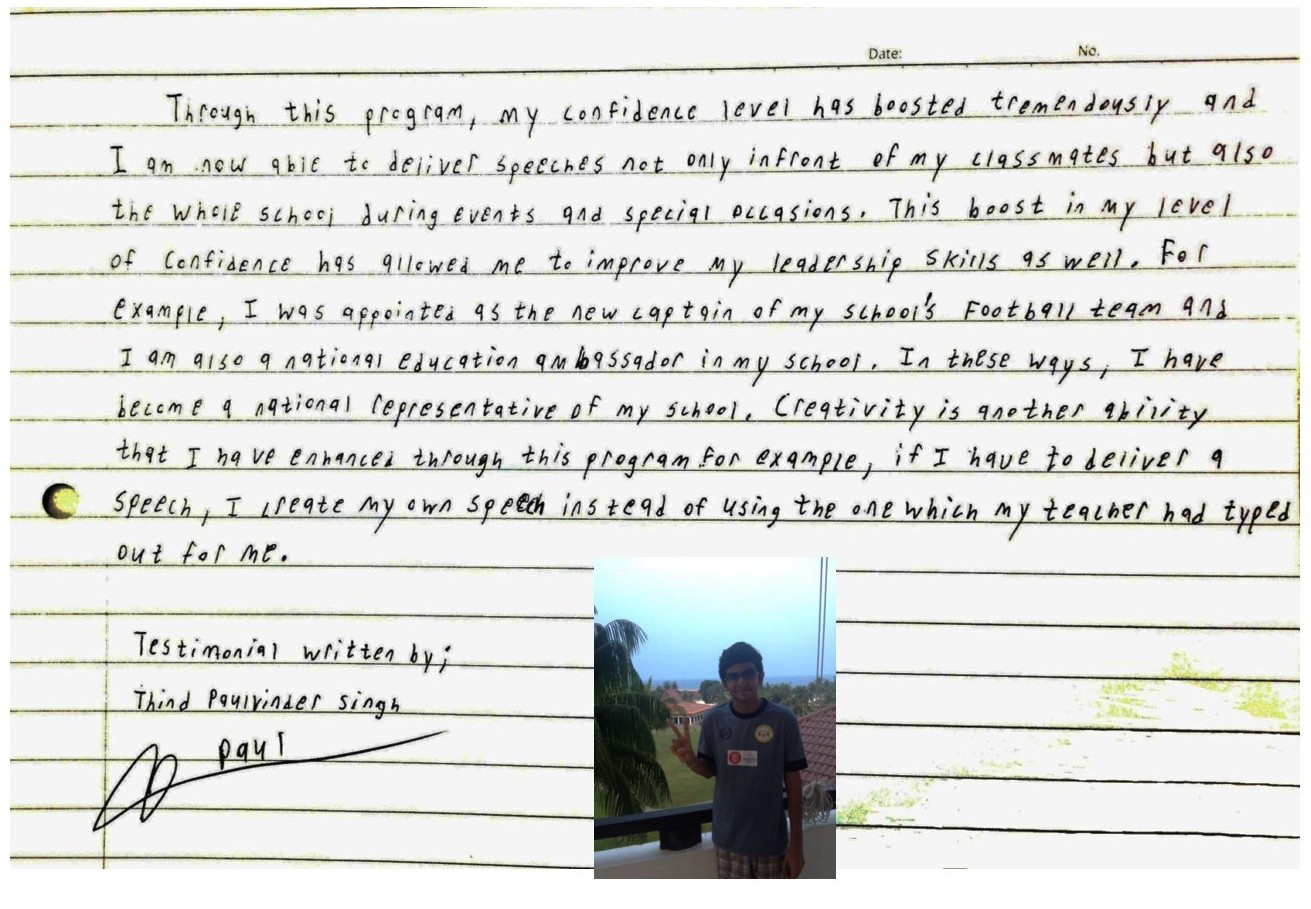 Date: No.
Through this program, my confidence level has boosted tremendously and
I am now able to deliver speeches not only infront of my classmates but also
the whole school during events and special occasions. This boost in my level
of confidence has allowed me to improve my leadership skills as well. For
example, I was appointed as the new captain of my school's Football team and
I am also a national education ambassador in my school. In these ways, I have
become a national representative of my school. Creativity is another ability
that I have enhanced through this program for example, if I have to deliver a
speech, I create my own speech instead of using the one which my teacher had typed
out for me.
Testimonial written by;
Thind Paulvinder Singh
Paul